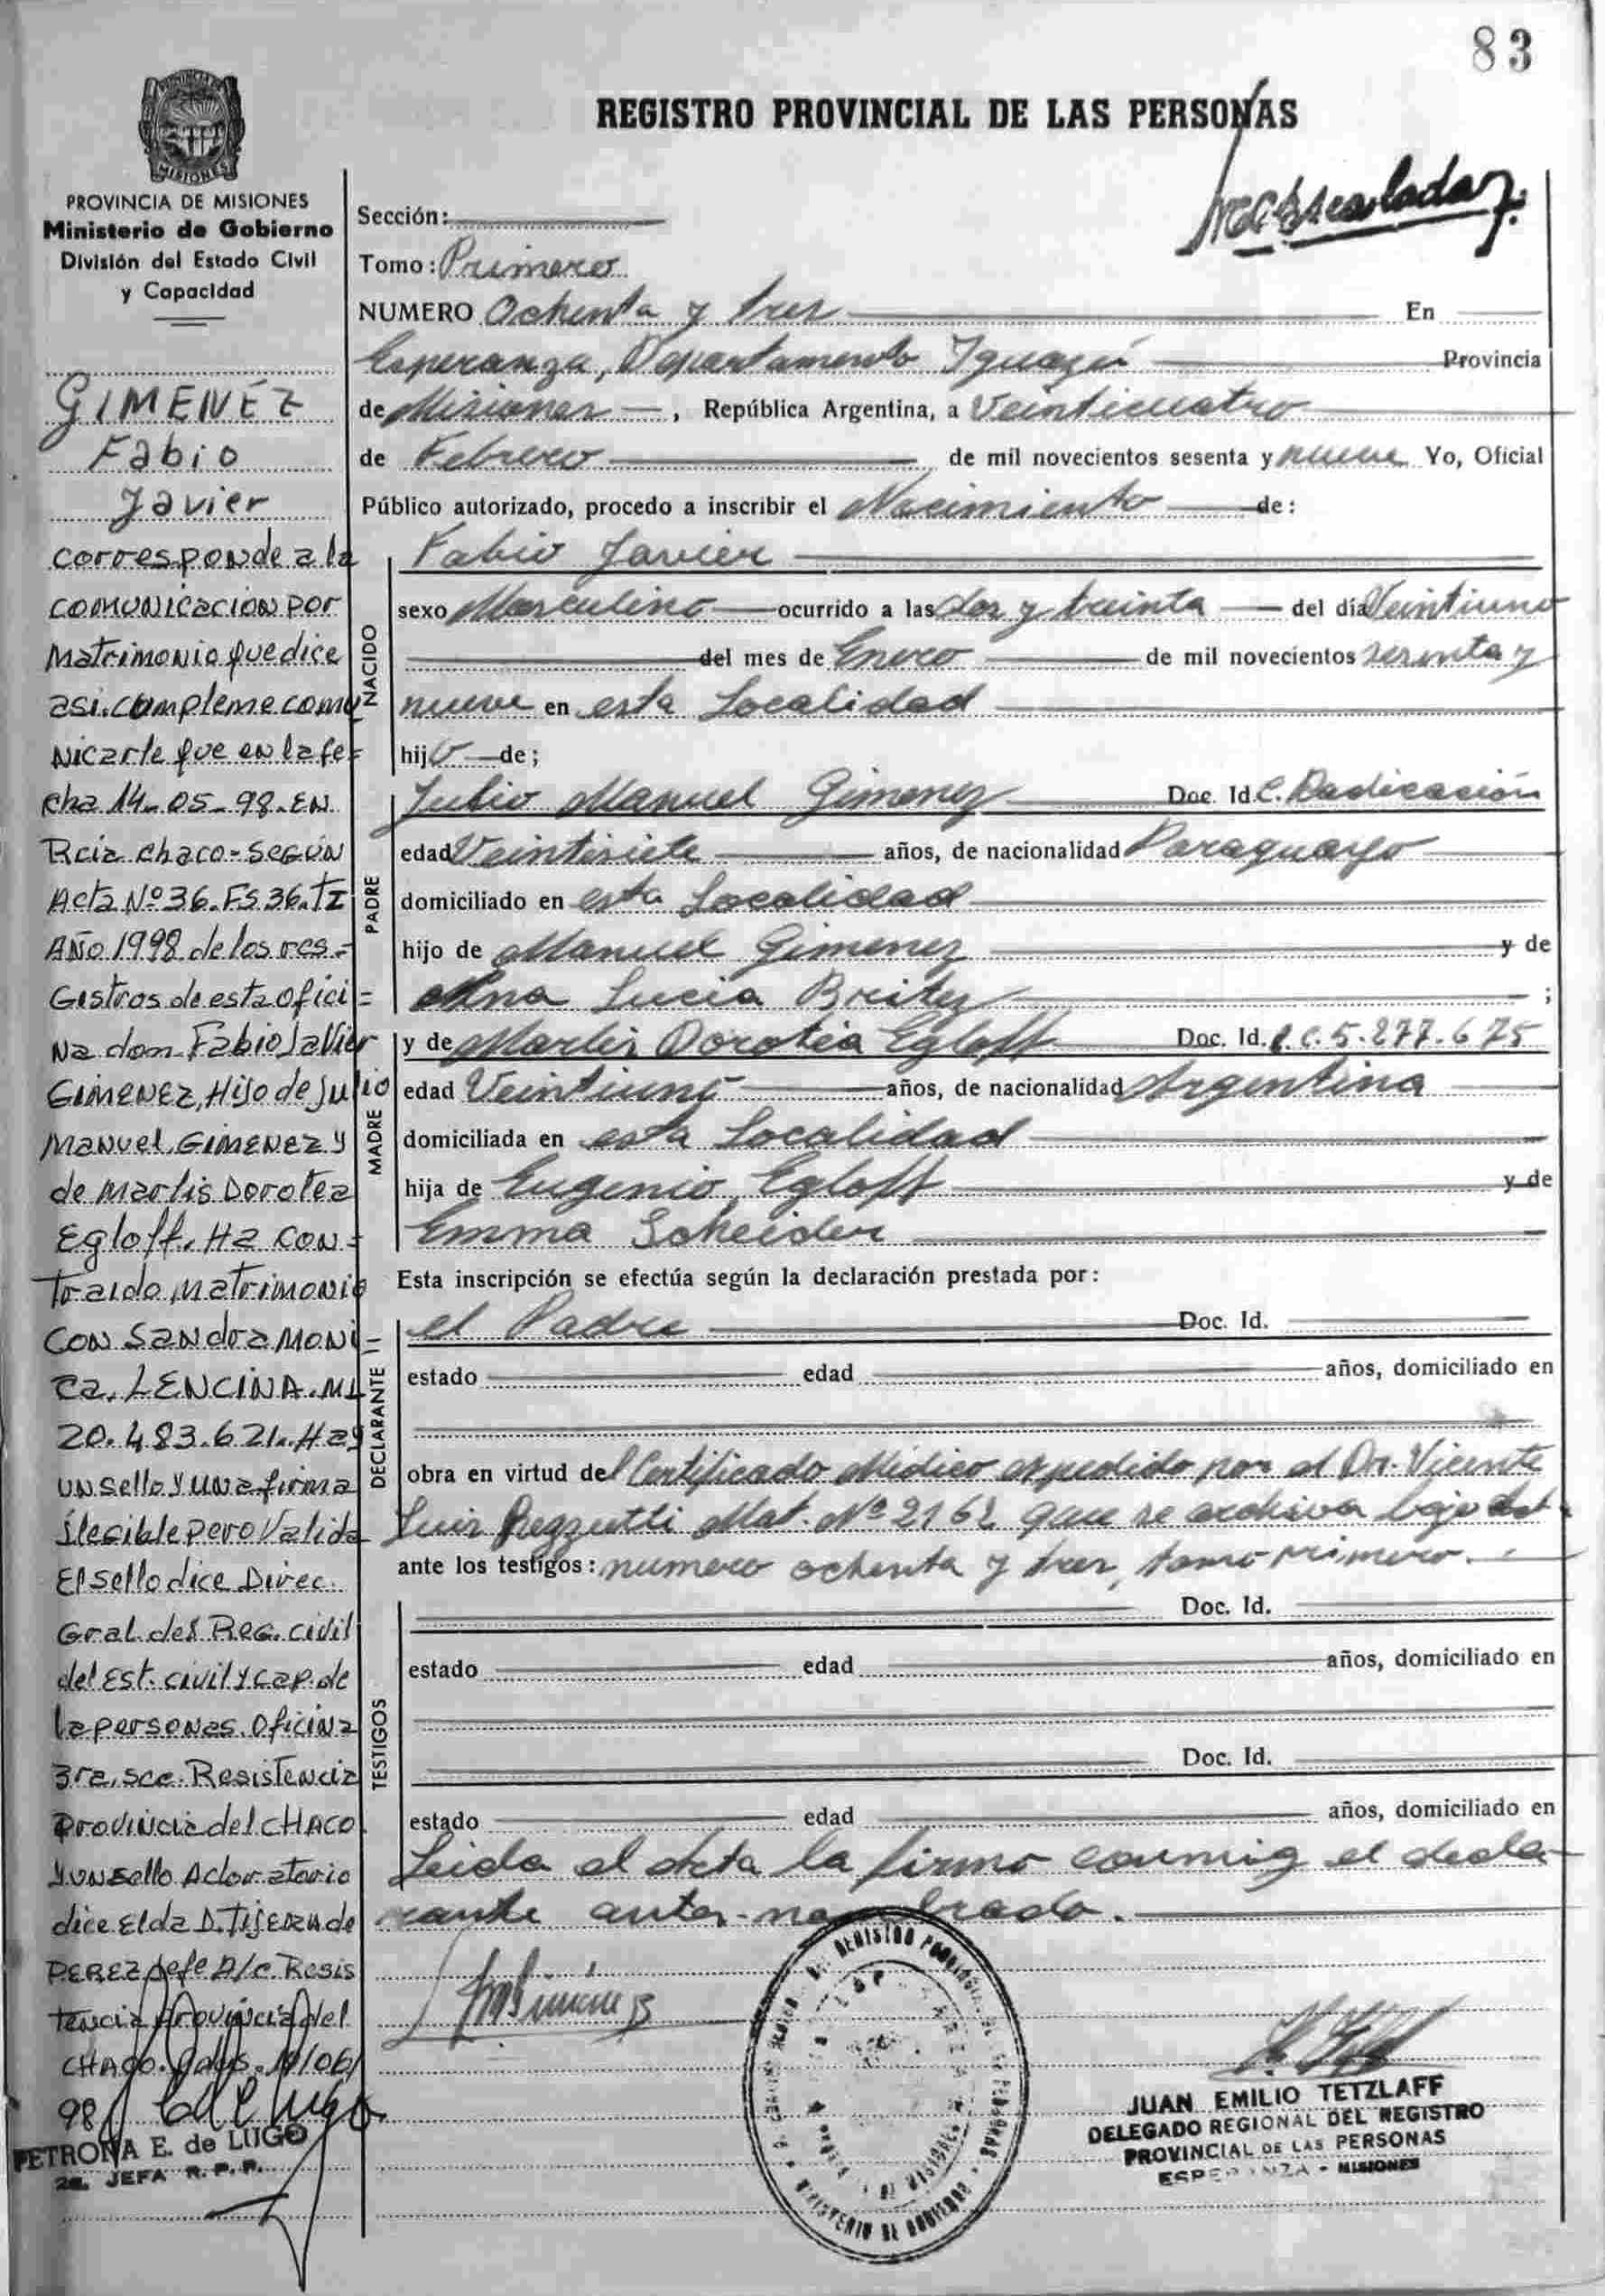 83
REGISTRO PROVINCIAL DE LAS PERSONAS
PROVINCIA DE MISIONES
Ministerio de Gobierno
División del Estado Civil
y Capacidad
GIMENÉZ
Fabio
Javier
corresponde a la
comunicacion por
Matrimonio que dice
asi. cumpleme comu
nicarle que en la fe=
cha 14-05-98. EN
Rcia Chaco - SEGÚN
Acta Nº 36. Fs 36. TI
AÑO 1998 de los res.=
Gistros de esta ofici=
Na don Fabio Javier
GIMENEZ, Hijo de Julio
Manuel GIMENEZ y
de Marlis Dorotea
Egloff. Ha con=
traido matrimonio
con SANdra MONi=
ca. LENCINA. MI
20.483.621. Hay
un sello y una firma
ilegible pero valida
El sello dice Direc.
Gral. del Reg. civil
del Est. civil y cap. de
la personas. Oficina
3ra. scc. Resistencia
Provincia del CHACO
y un sello Acloratorio
dice Elda D. Tijeran de
PEREZ Jefe A/c. Resis
tencia Provincia del
CHACO.
98
PETRONA E. de LUGO
2a. JEFA R. P. P.
Sección:
Tomo: Primero
NUMERO Ochenta y tres En
Esperanza, Departamento Iguazú Provincia
de Misiones, República Argentina, a Veinticuatro
de Febrero de mil novecientos sesenta y nueve Yo, Oficial
Público autorizado, procedo a inscribir el Nacimiento de:
NACIDO
Fabio Javier
sexo Masculino ocurrido a las dos y treinta del día Veintiuno
del mes de Enero de mil novecientos sesenta y
nueve en esta Localidad
hijo de;
PADRE
Julio Manuel Gimenez Doc. Id. C. Radicación
edad Veintisiete años, de nacionalidad Paraguayo
domiciliado en esta Localidad
hijo de Manuel Gimenez y de
Ana Lucia Breitez ;
MADRE
y de Marlis Dorotea Egloff Doc. Id. L.C. 5.277.675
edad Veintiuno años, de nacionalidad Argentina
domiciliada en esta Localidad
hija de Eugenio Egloff y de
Emma Scheider
Esta inscripción se efectúa según la declaración prestada por:
DECLARANTE
el Padre Doc. Id.
estado edad años, domiciliado en
obra en virtud del Certificado Médico expedido por el Dr. Vicente
Luis Rezzutti Mat. Nº 2162 que se archiva bajo
ante los testigos: numero ochenta y tres, tomo primero.
TESTIGOS
Doc. Id.
estado edad años, domiciliado en
Doc. Id.
estado edad años, domiciliado en
Leida el acta la firma conmig el decla-
rante antes-nombrado.
JUAN EMILIO TETZLAFF
DELEGADO REGIONAL DEL REGISTRO
PROVINCIAL DE LAS PERSONAS
ESPERANZA - MISIONES